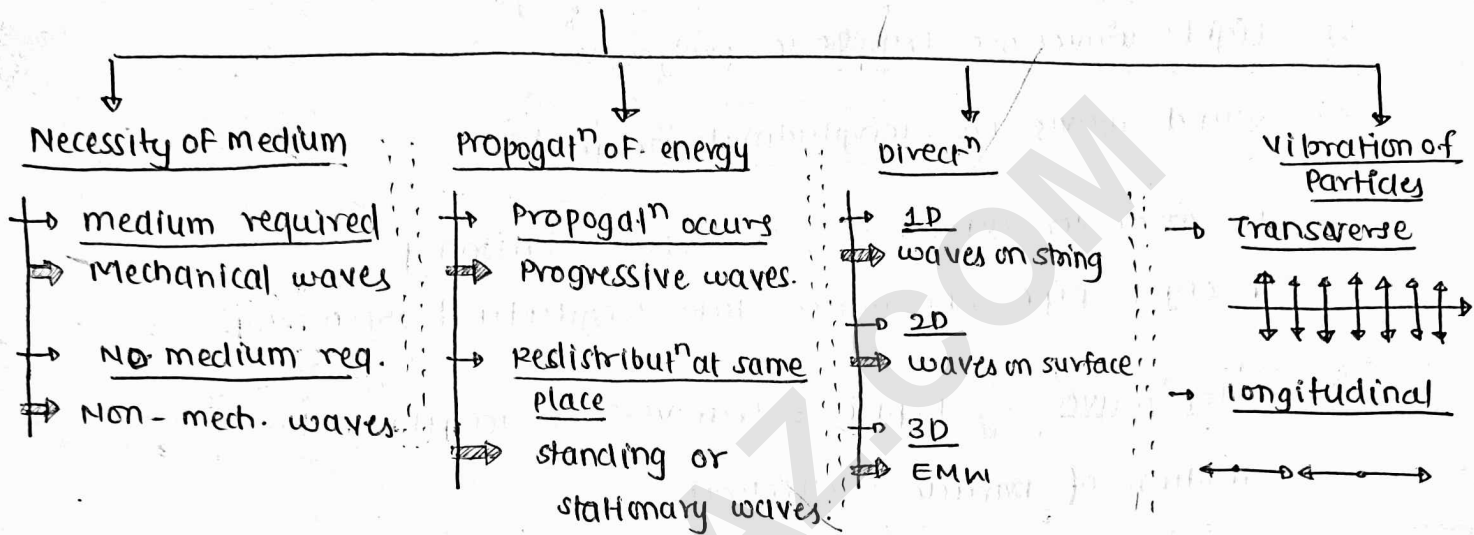 Necessity of medium
medium required
Mechanical waves
No medium req.
Non-mech. waves.
Propogatⁿ of energy
Propogatⁿ occurs
Progressive waves.
Redistributⁿ at same
place
standing or
stationary waves.
Directⁿ
1D
waves on string
2D
waves on surface
3D
EMW
Vibration of
Particles
Transverse
longitudinal
AZ.COM